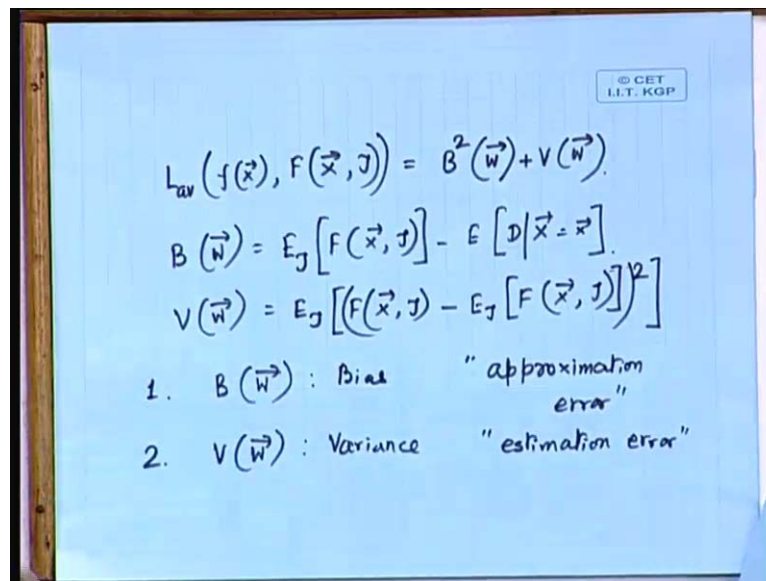 © CET
I.I.T. KGP
Lav (f(x⃗), F(x⃗, J)) = B²(w⃗) + V(w⃗).
B(w⃗) = E_J [F(x⃗, J)] - E [D|X⃗ = x⃗].
V(w⃗) = E_J [(F(x⃗, J) - E_J [F(x⃗, J)])²]
1. B(w⃗) : Bias "approximation
error"
2. V(w⃗) : Variance "estimation error"